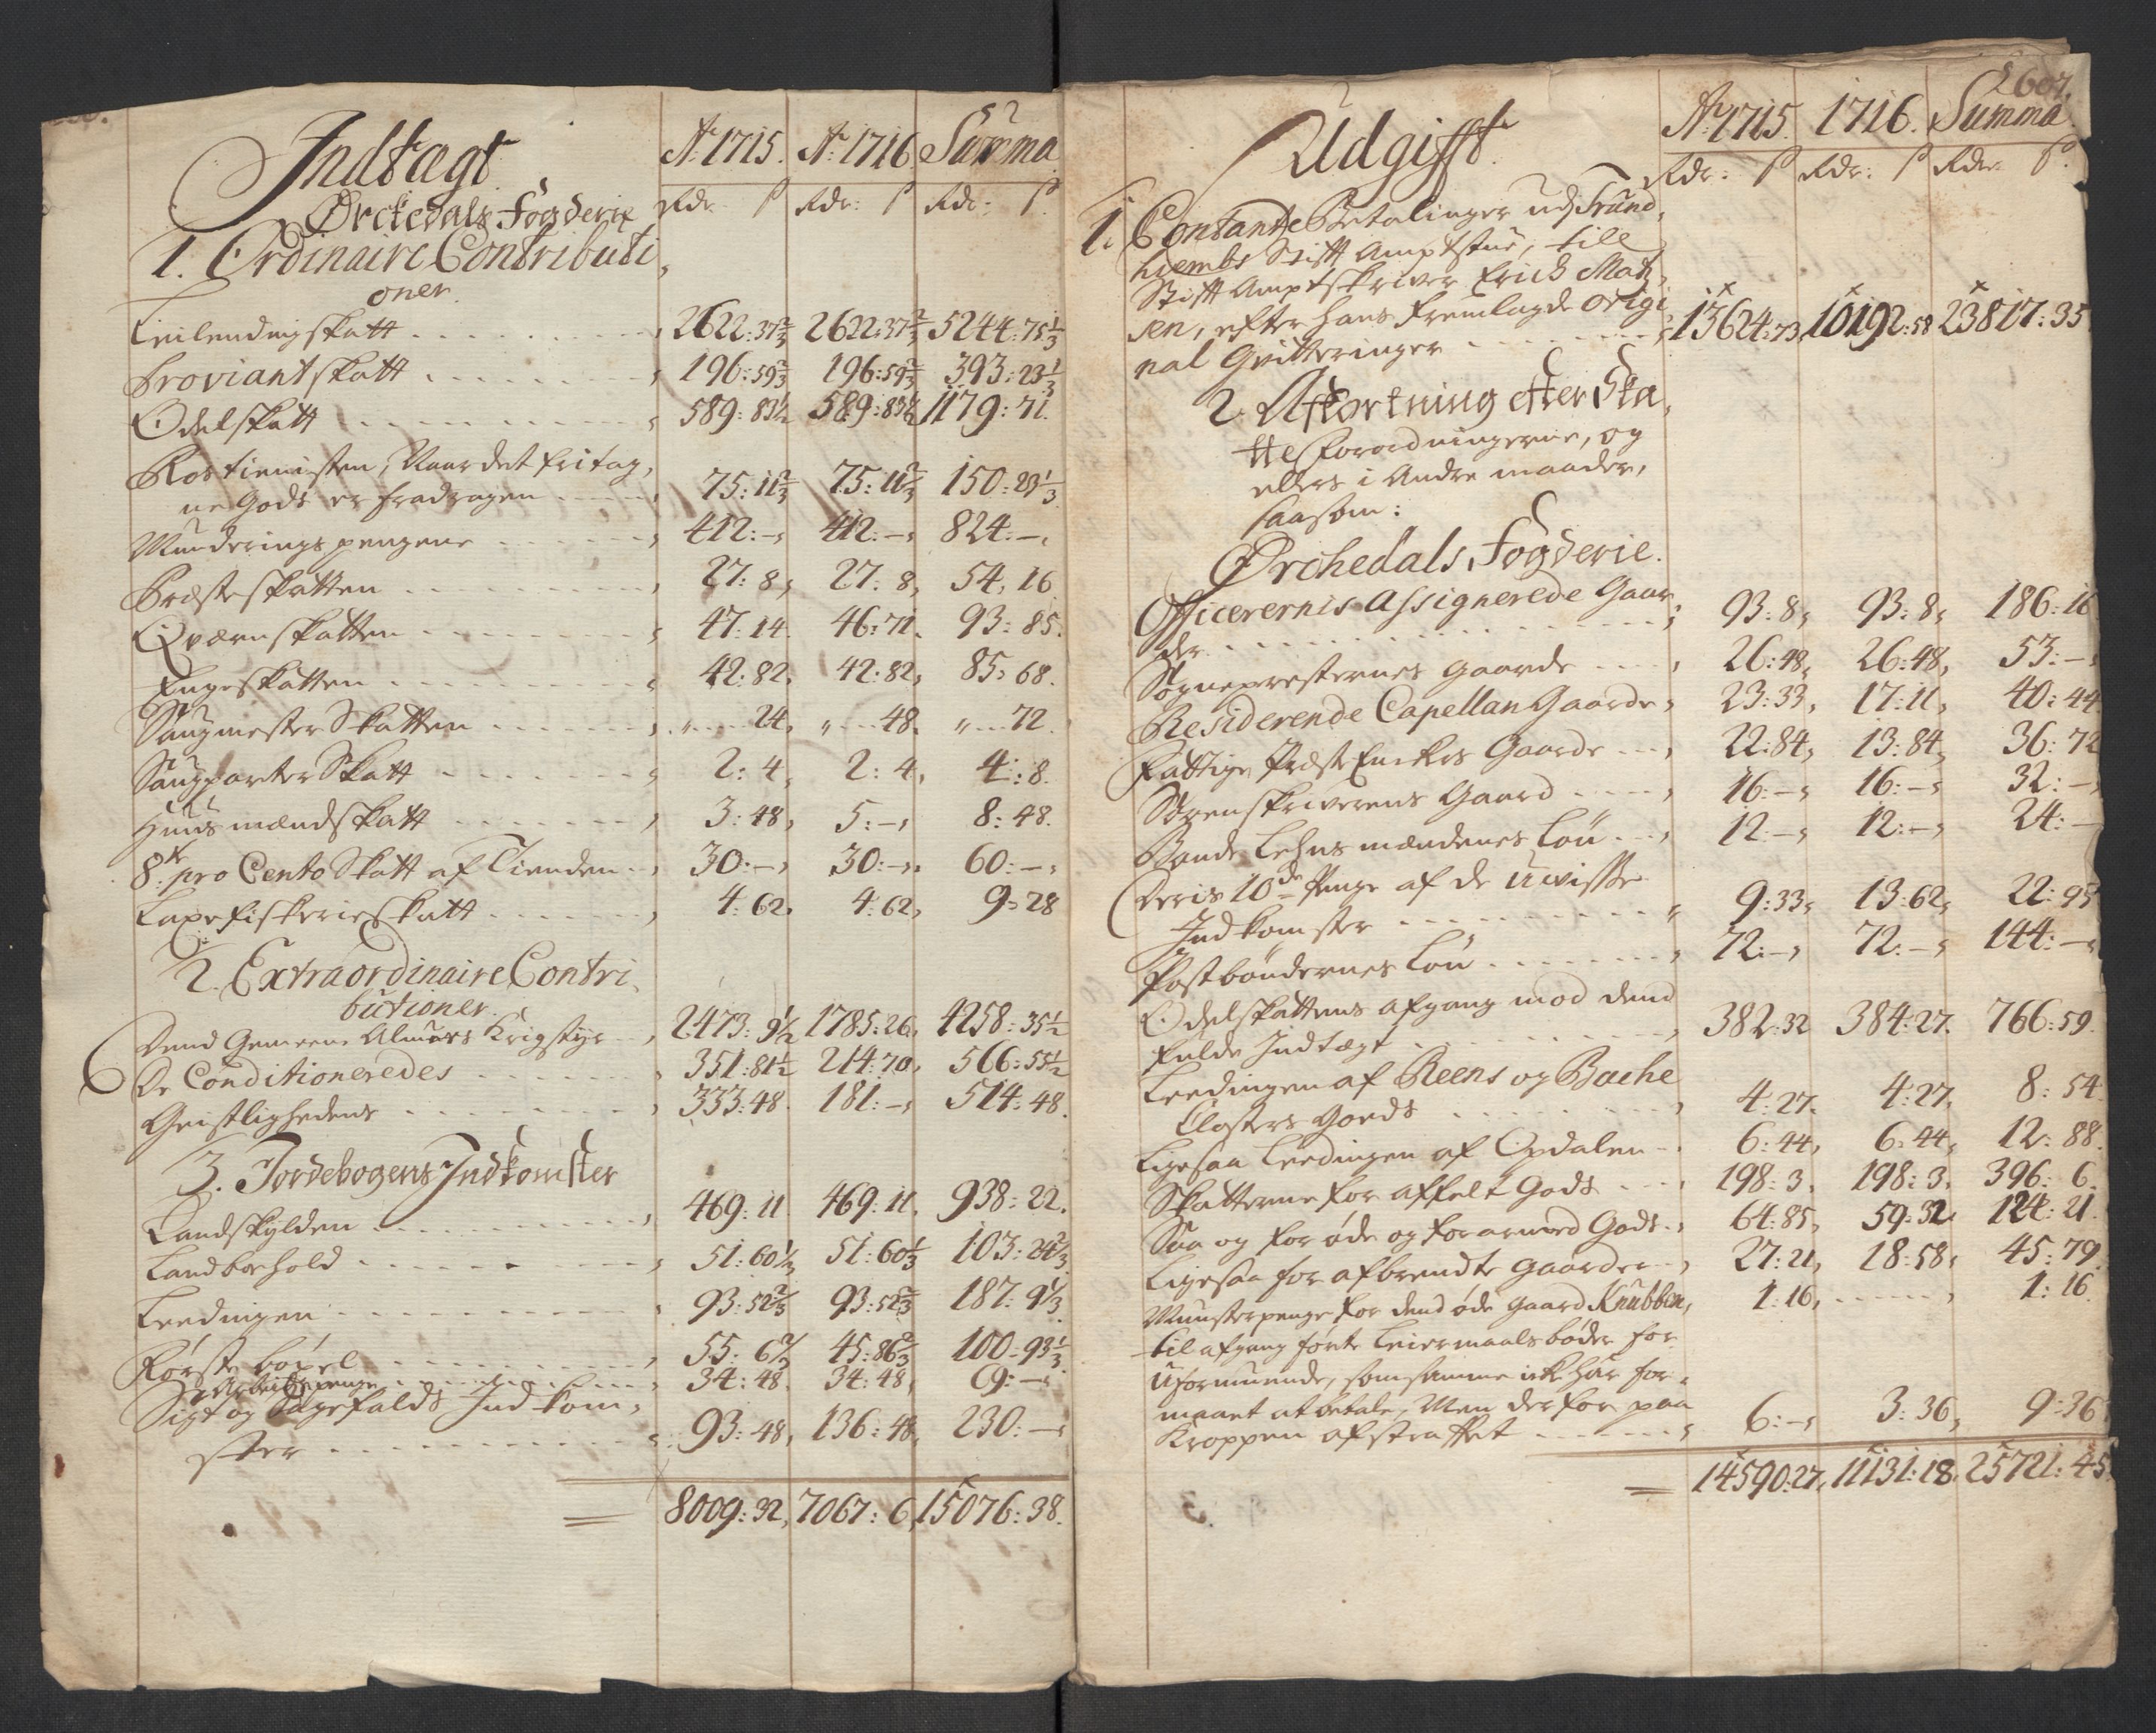 Indtægt
Ørckedals Fogderie
Ao 1715. Ao 1716 Summa
Rdr: ß Rdr: ß Rdr: ß
1. Ordinaire Contributi
oner.
Leilendingskatt . . . 2622:37 2/3 2622:37 2/3 5244:75 1/3
Proviantskatt . . . 196:59 2/3 196:59 2/3 393:23 1/3
Odelskatt . . . 589:83 1/2 589:83 1/2 1179:71.
Rostienisten, Naar det fritag,
ne Gods er fradragen . . . 75:11 2/3 75:11 2/3 150:23 1/3
Munderingspengene . . . 412:-, 412:-, 824:-,
Præsteskatten . . . 27:8, 27:8, 54:16
Qværnskatten . . . 47:14. 46:71. 93:85.
Engeskatten . . . 42:82, 42:82, 85:68.
Saugmester Skatten . . . „ 24, „ 48. „ 72.
Saugparter Skatt . . . 2:4, 2:4, 4:8.
Huusmændskatt . . . 3:48, 5:-, 8:48.
8te pro Cento Skatt af Tienden . . 30:-, 30:-, 60:-,
Laxefiskerieskatt . . . 4:62, 4:62, 9:28
2. Extraordinaire Contri,
butioner.
Dend Gemeene Almues Krigstyr . . 2473:9 1/2 1785:26, 4258:35 1/2
De Conditioneredes . . . 351:81 1/2 214:70, 566:55 1/2
Geistlighedens . . . 333:48. 181:-, 514:48.
3. Jordebogens Indkomster
Landskylden . . . 469:11. 469:11. 938:22.
Landbohold . . . 51:60 1/3 51:60 1/3 103:24 2/3
Leedingen . . . 93:52 2/3 93:52 2/3 187:9 1/3
Første bøxel . . . 55:6 2/3 45:86 2/3 100:93 1/3
Arbeidspenge . . . 34:48. 34:48, 69:-,
Sigt og Sagefalds Indkom,
ster . . . 93:48, 136:48, 230:-,
8009:32, 7067:6, 15076:38.
607.
Udgifft.
Ao 1715. 1716. Summa
Rdr: ß Rdr: ß Rdr: ß.
1. Contante Betalinger udj Trund,
hiembs Stift Amptstue, till
Stift Amptskriver Erich Mat,
sen, efter hans fremlagde origi
nal Qvitteringer . . . 13624:73, 10192:58 23817:35.
2. Afkortning efter Ska,
tte forordningerne, og
ellers i Andre maader,
saasom:
Ørchedals, Fogderie.
Officerernis Assignerede Gaar,
der . . . 93:8, 93:8, 186:16
Sognepresternes gaarde . . . 26:48, 26:48, 53:-,
Residerende Capellan Gaarde, 23:33, 17:11, 40:44
Fattige Præste Enckes Gaarde . . . 22:84, 13:84, 36:72
Sorenskriverens Gaard . . . 16:-, 16:-, 32:-,
Bonde Lehnsmændenes Løn . . . 12:-, 12:-, 24:-
Deris 10de Penge af de Uwisse
Indkomster . . . 9:33, 13:62, 22:95
Postbøndernes Løn . . . 72:-, 72:-, 144:-,
Odelskattens afgang mod dend
fulde Indtægt . . . 382:32 384:27. 766:59.
Leedingen af Reens og Bache
Closters Goeds . . . 4:27. 4:27, 8:54.
Ligesaa Leedingen af Opdalen . . 6:44, 6:44, 12:88.
Skatterne for affelt Gods . . . 198:3, 198:3, 396:6.
Saa og for øde og forarmed Gods . . 64:85, 59:32. 124:21.
Ligesaa for afbrendte gaarder . . 27:21, 18:58, 45:79.
Munsterpenge for dend øde gaard Knubben, 1:16, . . . 1:16.
til afgang førte Leiermaalsbøder for
uformuende, som samme icke har for,
maaet at betale, Men derfor paa
Kroppen afstraffet . . . 6:-, 3:36, 9:36,
14590:27, 11131:18. 25721:45.